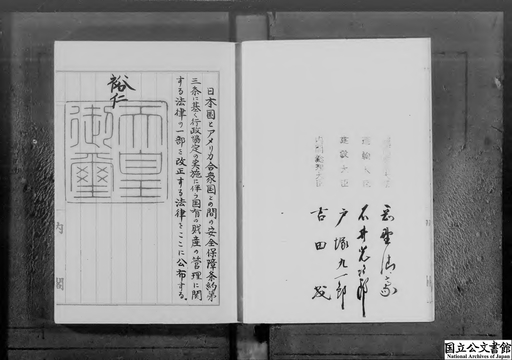 運輸大臣
石井光次郎
建設大臣
戸塚九一郎
内閣総理大臣
吉田茂
日本国とアメリカ合衆国との間の安全保障条約第
三条に基く行政協定の実施に伴う国有の財産の管理に関
する法律の一部を改正する法律をここに公布する。
裕仁
天皇
御璽
内閣
国立公文書館
National Archives of Japan